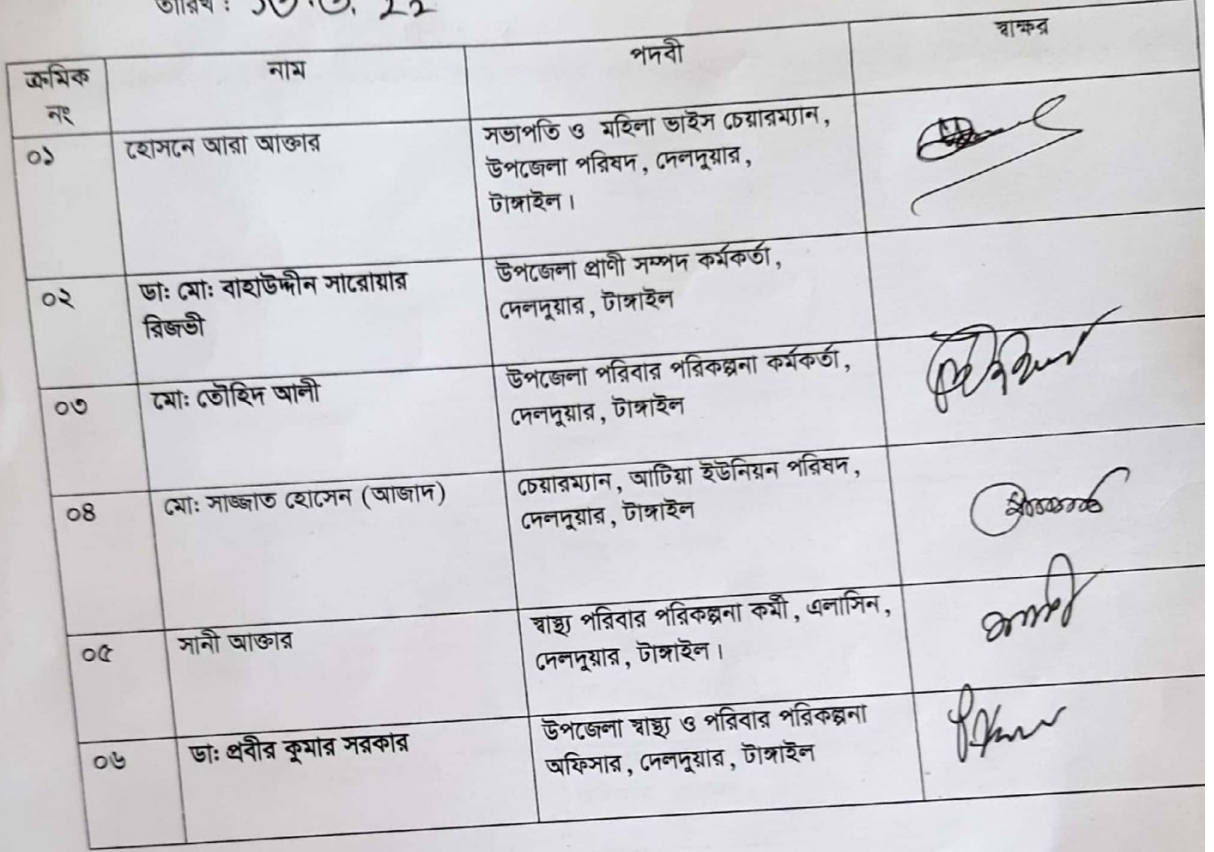 তারিখ :
ক্রমিক নং নাম পদবী স্বাক্ষর
০১ হোসনে আরা আক্তার সভাপতি ও মহিলা ভাইস চেয়ারম্যান,
উপজেলা পরিষদ, দেলদুয়ার,
টাঙ্গাইল।
০২ ডাঃ মোঃ বাহাউদ্দীন সারোয়ার
রিজভী
উপজেলা প্রাণী সম্পদ কর্মকর্তা,
দেলদুয়ার, টাঙ্গাইল
০৩ মোঃ তৌহিদ আলী উপজেলা পরিবার পরিকল্পনা কর্মকর্তা,
দেলদুয়ার, টাঙ্গাইল
০৪ মোঃ সাজ্জাত হোসেন (আজাদ) চেয়ারম্যান, আটিয়া ইউনিয়ন পরিষদ,
দেলদুয়ার, টাঙ্গাইল
০৫ সানী আক্তার স্বাস্থ্য পরিবার পরিকল্পনা কর্মী, এলাসিন,
দেলদুয়ার, টাঙ্গাইল।
০৬ ডাঃ প্রবীর কুমার সরকার উপজেলা স্বাস্থ্য ও পরিবার পরিকল্পনা
অফিসার, দেলদুয়ার, টাঙ্গাইল